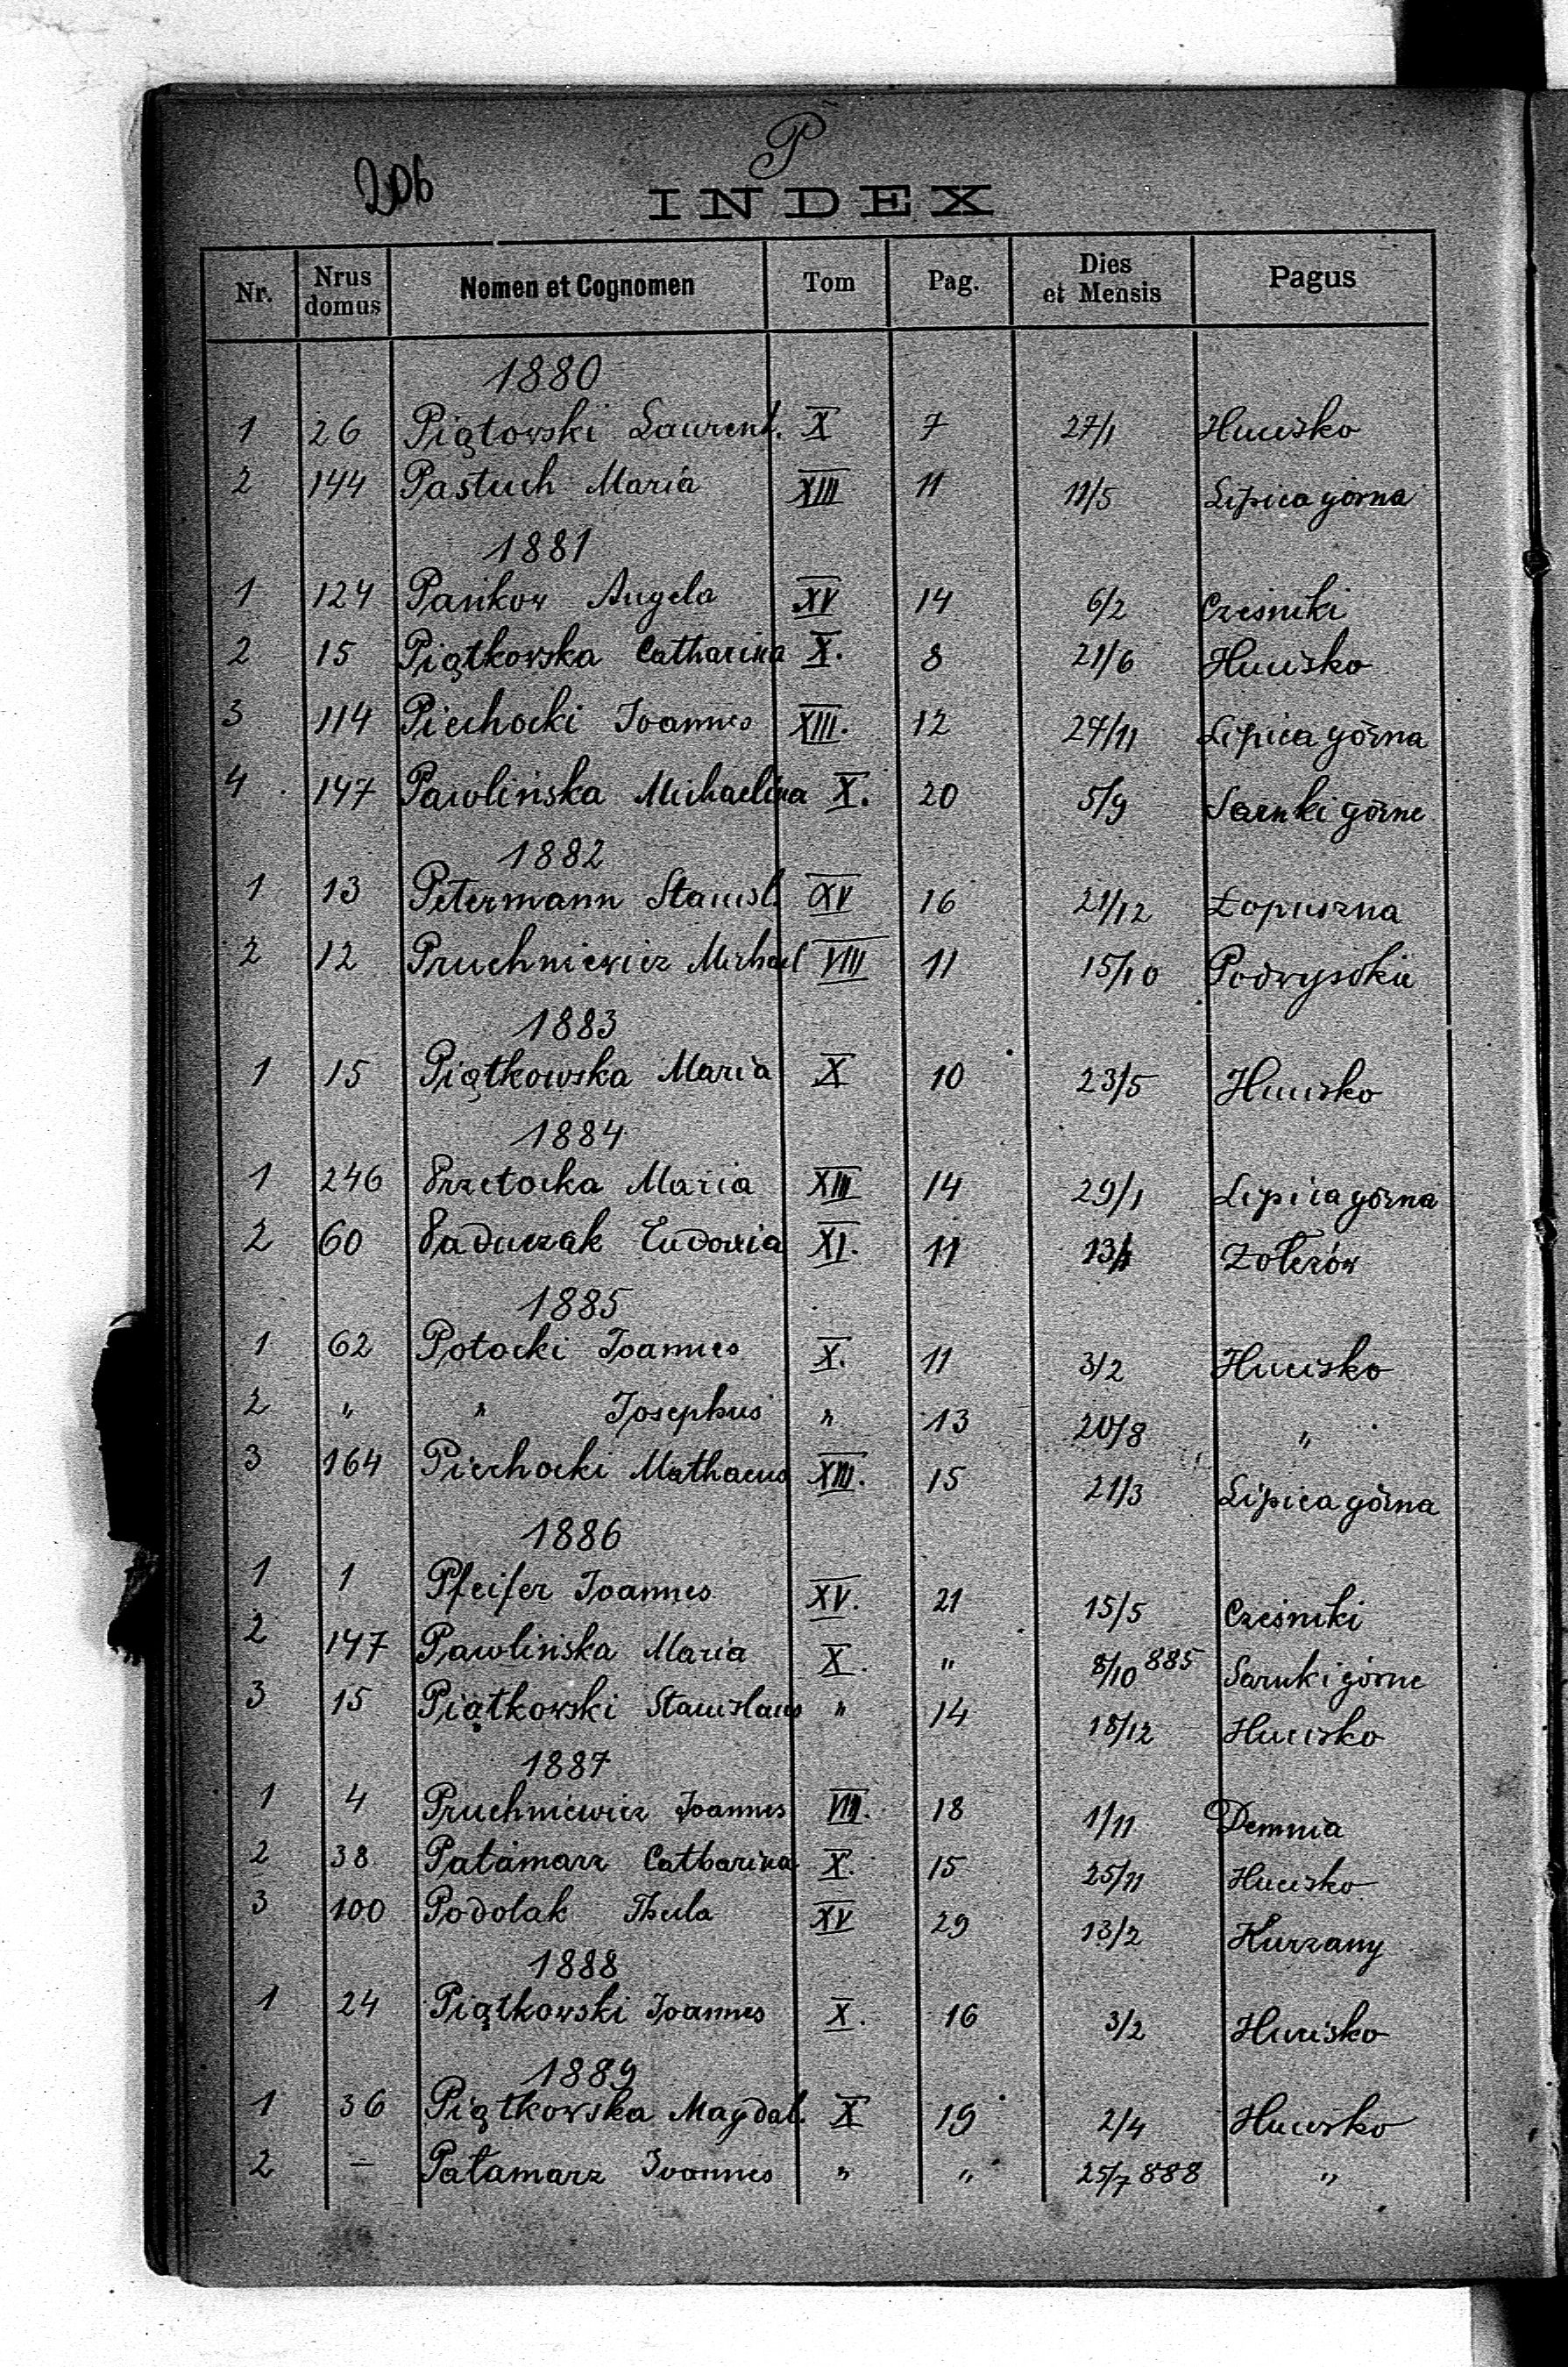 P
206
INDEX
Nr. Nrus domus Nomen et Cognomen Tom Pag. Dies et Mensis Pagus
1880
1 26 Piątowski Laurent. X 7 27/1 Hucisko
2 144 Pastuch Maria XIII 11 11/5 Lipica górna
1881
1 124 Pańkow Angela XV 14 6/2 Cześniki
2 15 Piątkowska Catharina X. 8 21/6 Hucisko
3 114 Piechocki Joannes XIII. 12 27/11 Lipica górna
4 147 Pawlińska Michaelina X. 20 5/9 Sarnki górne
1882
1 13 Petermann Stanisl. XV 16 21/12 Łopuszna
2 12 Pruchniewicz Michael VIII 11 15/10 Podwysokie
1883
1 15 Piątkowska Maria X 10 23/5 Hucisko
1884
1 246 Przetocka Maria XIII 14 29/1 Lipica górna
2 60 Paduczak Eudoxia XI. 11 Żołczów
1885
1 62 Potocki Joannes X. 11 3/2 Hucisko
2 " " Josephus " 13 20/8 "
3 164 Piechocki Mathaeus XIII. 15 21/3 Lipica górna
1886
1 1 Pfeifer Joannes XV. 21 15/5 Cześniki
2 147 Pawlińska Maria X. " 8/10 885 Sarnki górne
3 15 Piątkowski Stanislaus " 14 18/12 Hucisko
1887
1 4 Pruchniewicz Joannes VIII. 18 1/11 Demnia
2 38 Patamarz Catharina X. 15 25/11 Hucisko
3 100 Podolak Thecla XV 29 13/2 Kurzany
1888
1 24 Piątkowski Joannes X. 16 3/2 Hucisko
1889
1 36 Piątkowska Magdal. X 19 2/4 Hucisko
2 — Patamarz Joannes " " 25/7 888 "